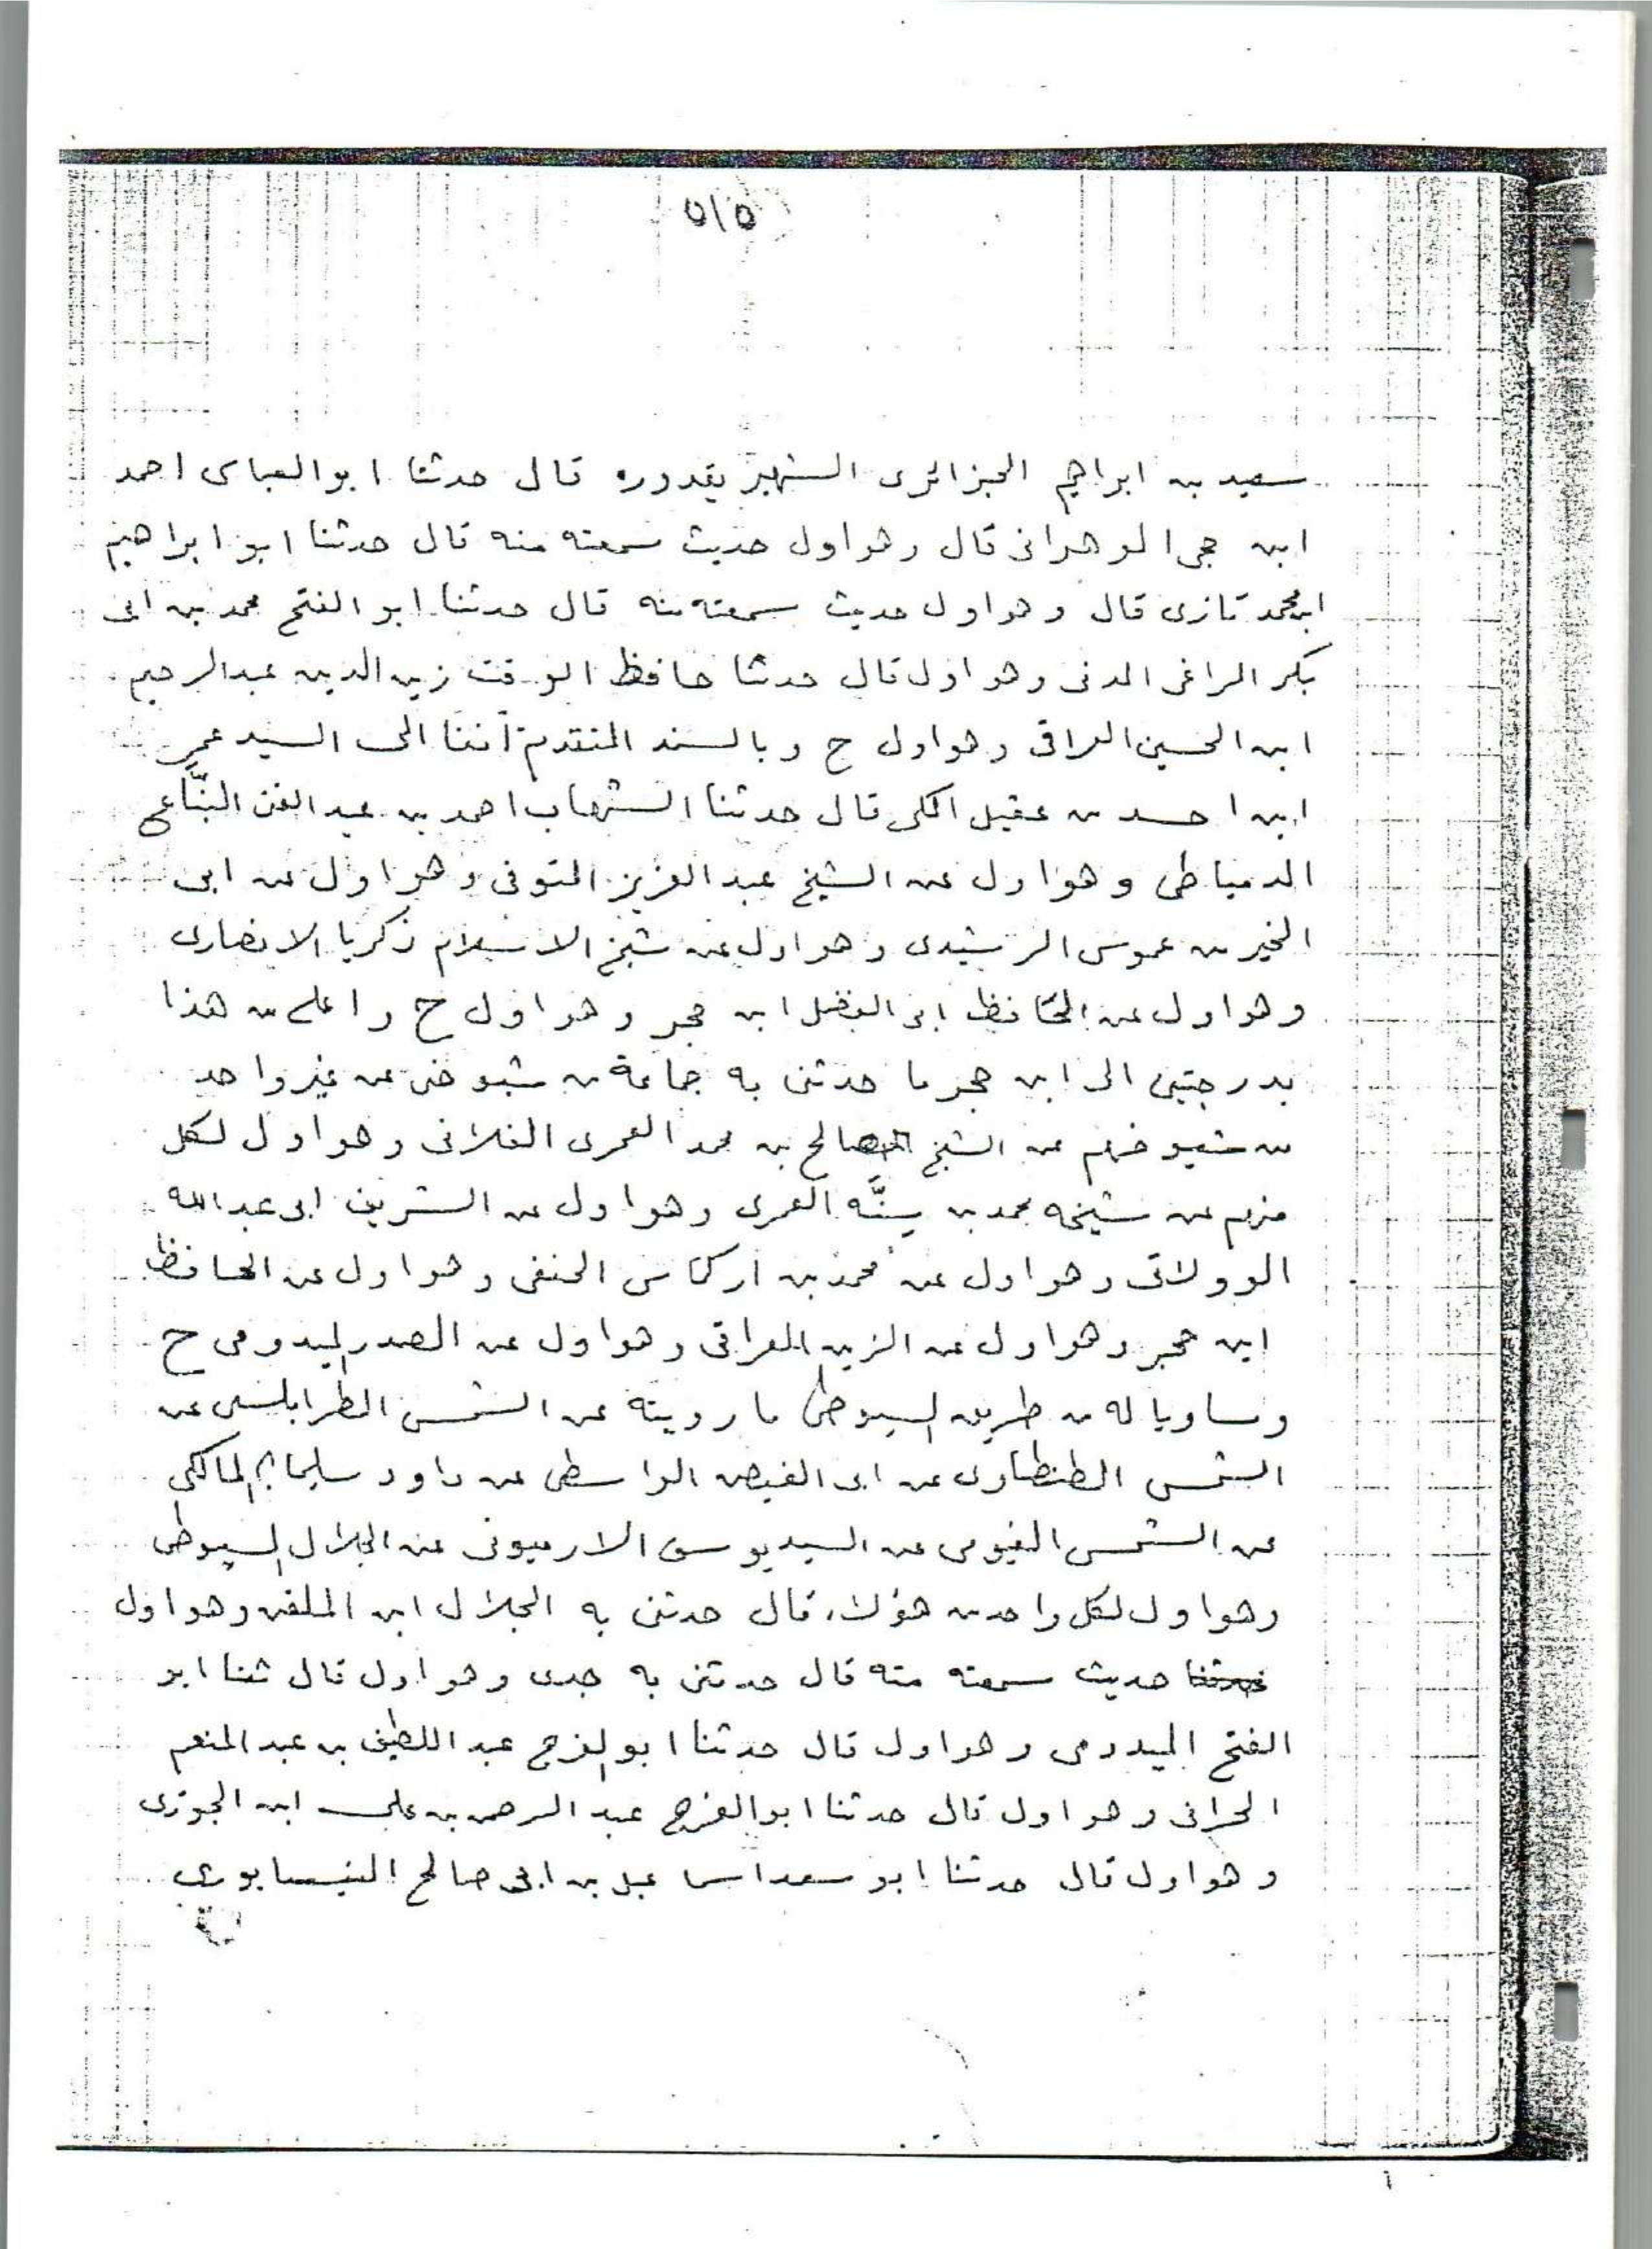 ٥١٥
سعيد بن ابراهيم الجزائرى الشهير بقدوره قال حدثنا ابو العباس احمد
ابن حجى الوهرانى قال وهو اول حديث سمعته منه قال حدثنا ابو ابراهيم
ابن محمد تازى قال وهو اول حديث سمعته منه قال حدثنا ابو الفتح محمد بن ابى
بكر المراغى المدنى وهو اول قال حدثنا حافظ الوقت زين الدين عبد الرحيم
ابن الحسين العراقى وهو اول ح وبالسند المتقدم آنفا الى السيد عمر
ابن احمد بن عقيل المكى قال حدثنا الشهاب احمد بن عبد الغنى البنّاء ح
الدمياطى وهو اول عن الشيخ عبد العزيز المنوفى وهو اول عن ابى
الخير بن عموس الرشيدى وهو اول عن شيخ الاسلام زكريا الانصارى
وهو اول عن الحافظ ابى الفضل ابن حجر وهو اول ح واعلى من هذا
بدرجتين الى ابن حجر ما حدثنى به جماعة من شيوخى عن غير واحد
من شيوخهم عن الشيخ صالح بن محمد العمرى الفلانى وهو اول لكل
منهم عن شيخه محمد بن سِنَّه العمرى وهو اول عن الشريف ابى عبد الله
الوولاتى وهو اول عن محمد بن اركماس الحنفى وهو اول عن الحافظ
ابن حجر وهو اول عن الزين العراقى وهو اول عن الصدر الميدومى ح
ومساويا له من طريق السيوطى ما رويته عن الشمس الطرابلسى عن
الشمس الطنطاوى عن ابى الفيض الواسطى عن داود سليمانى المالكى
عن الشمس الفيومى عن السيد يوسف الارميونى عن الجلال السيوطى
وهو اول لكل واحد من هؤلاء قال حدثنى به الجلال ابن الملقن وهو اول
حديث سمعته منه قال حدثنى به جدى وهو اول قال ثنا ابو
الفتح الميدومى وهو اول قال حدثنا ابو الفرج عبد اللطيف بن عبد المنعم
الحرانى وهو اول قال حدثنا ابو الفرج عبد الرحمن بن على ابن الجوزى
وهو اول قال حدثنا ابو سعد اسماعيل بن ابى صالح النيسابورى